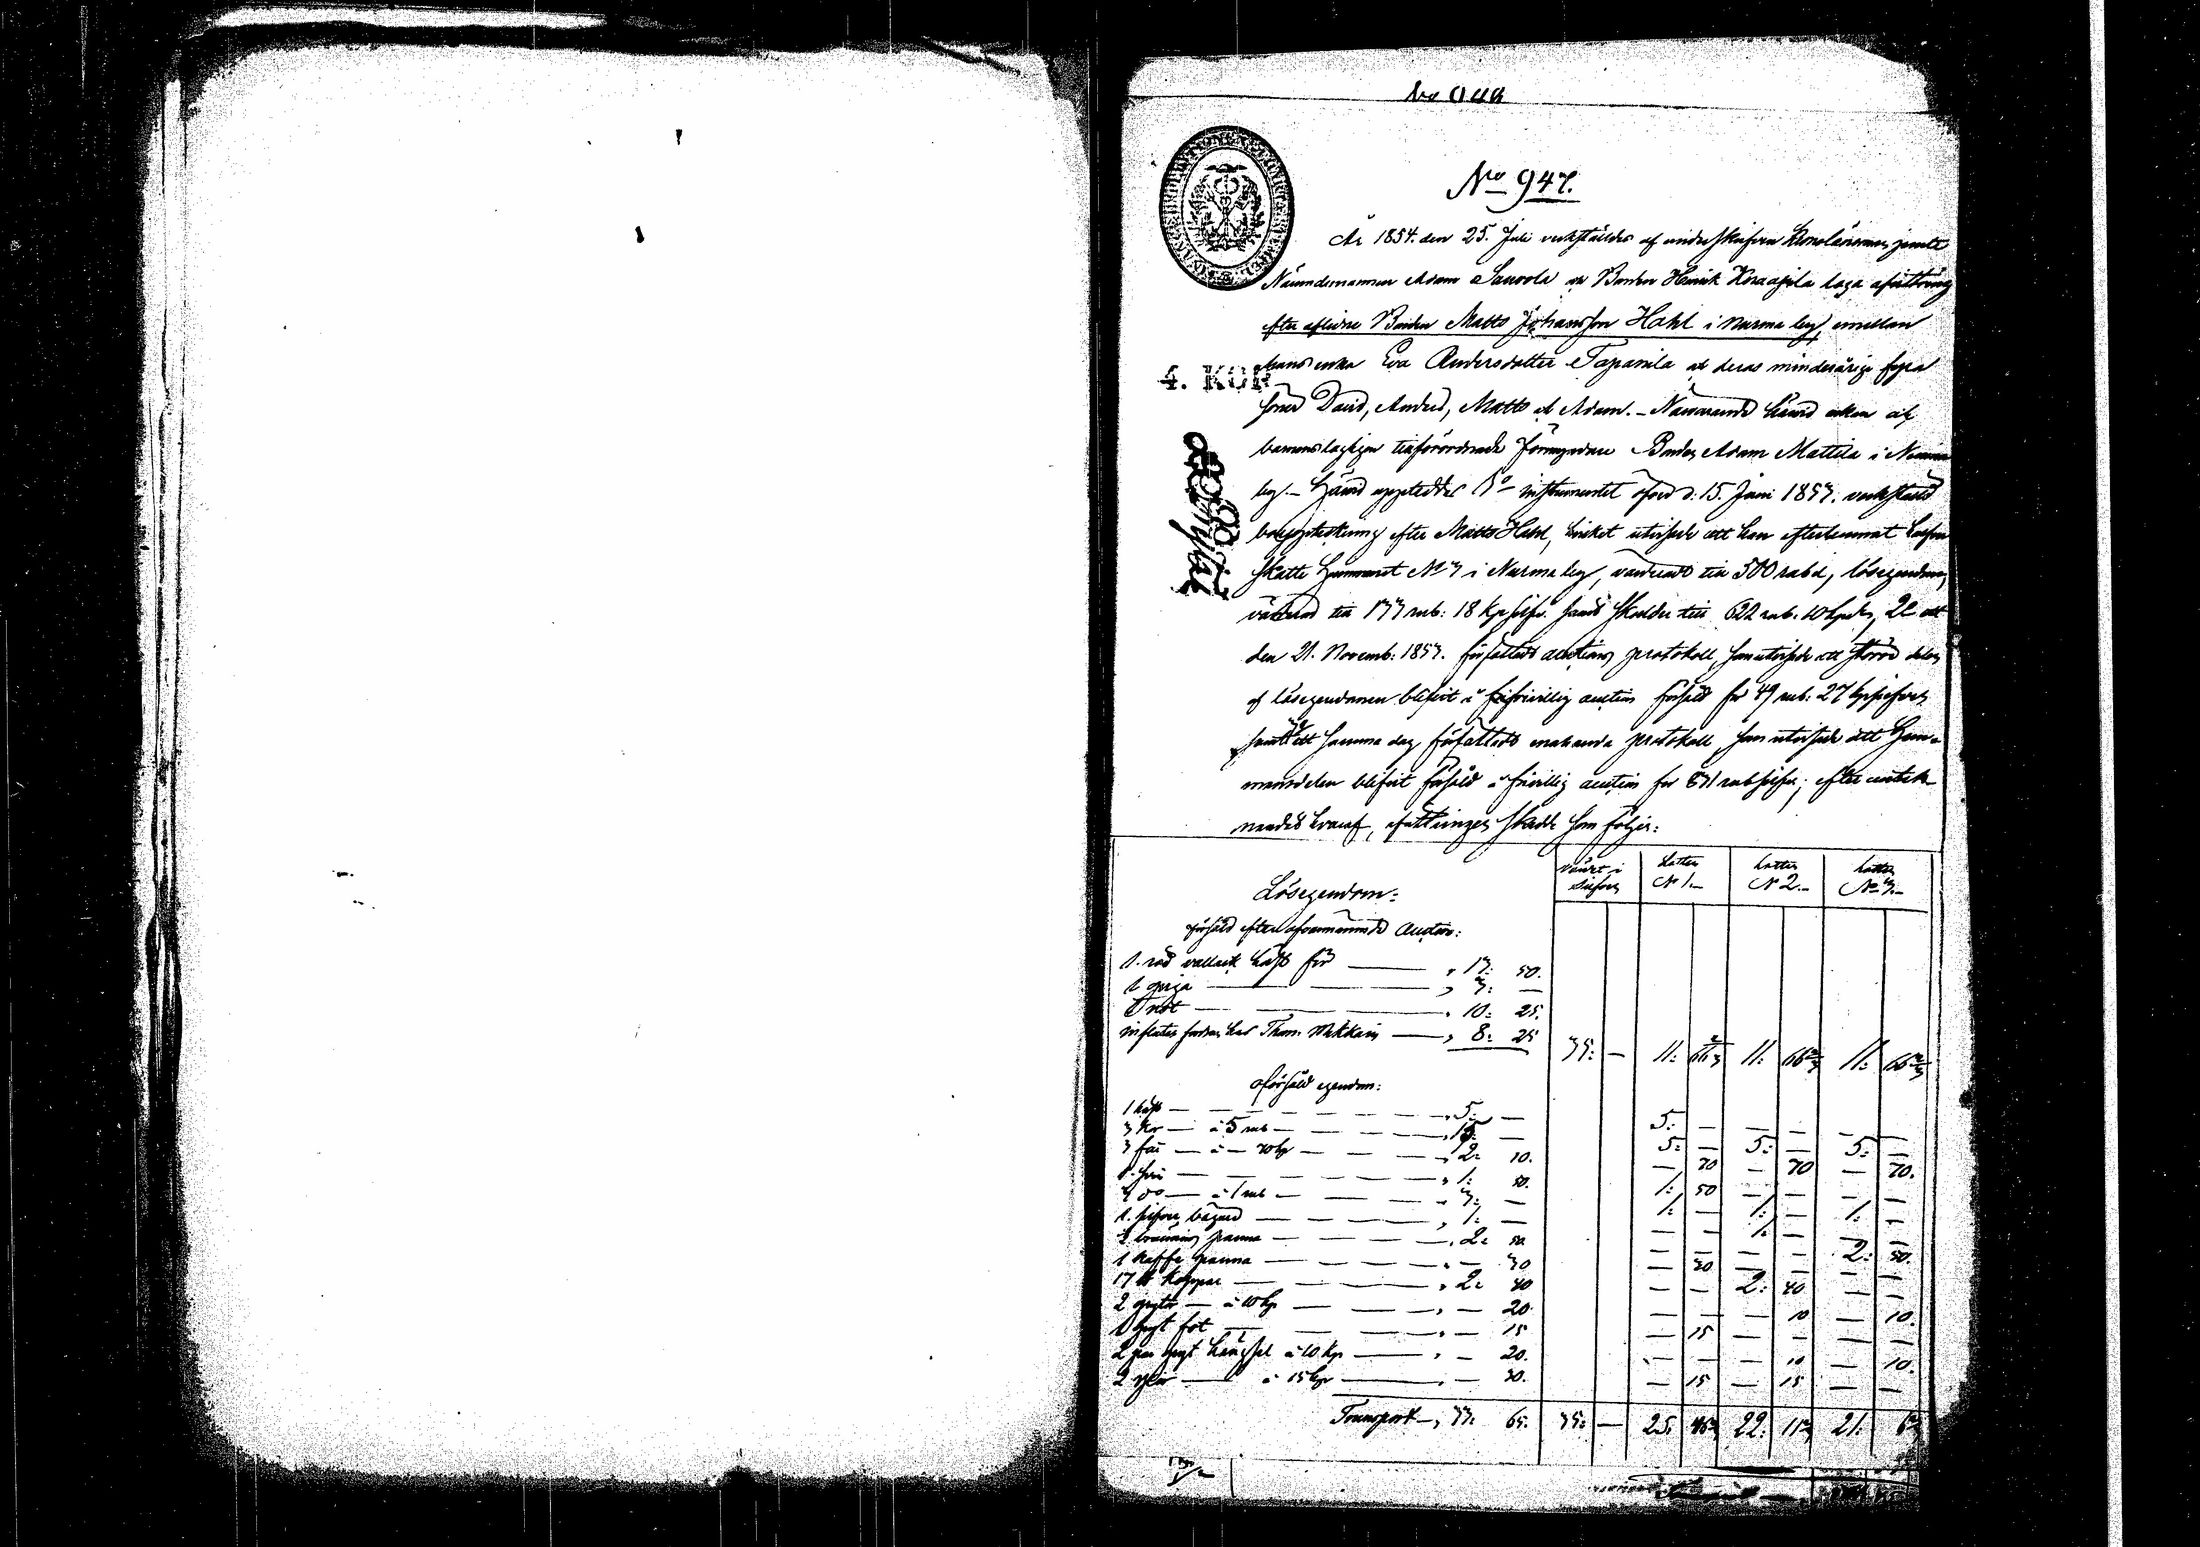 No 947.
År 1854. den 25. Juli verkställdes af underskrifven Kronolänsman jemte
Nämndemannen Adam Sauvola och Bonden Henrik laga afvittring
efter aflidne Bonden Matts Johansson Hahl i Nurma by, emellan
hans enka Eva Andersdotter Tapanila och deras minderåriga
4. KOP
söner David, Anders, Matts och Adam. – Närvarande härvid enkan och
barnens lagligen tillförordnade förmyndare Bonden Adam Mattila i Nurma
by. – Härvid uppteddes 1o instrumentet öfver d: 15. Juni 1853. verkställd
boupptekning efter Matts Hahl, hvilket utvisade att han efterlemnat
Skatte Hemmanet No 3 i Nurma by, värderadt till 500 rubel, lösegendom,
värderad till 133 rub: 18 kop silfver samt skulder till 622 rub. 10 kopek, 2o ett
den 21. Novemb: 1853. författadt auctions protokoll, som utvisade att större delen
af lösegendomen blifvit å frivillig auction försåld för 49 rub: 27 kop silfver,
samt ett samma dag författadt enahanda protokoll, som utvisade att Hem-
mansdelen blifvit försåld å frivillig auction för rub silfver; efter
som följer:
Värde i Silfver Lotten No 1. – Lotten No 2. – Lotten No 3. –
Lösegendom:
försåld efter ofvannämnde Auction:
1. röd vallack häst för — " 13: 50.
1 — " 3: —
1 nöt — " 10: 25.
fordran hos Thom: — " 8: 25 35: — 11: 66 2/3 11: 66 2/3 11: 66 2/3
oförsåld egendom:
1 häst — " 5: — 5: — — — — —
3 kor — à 5 rub — " 15: — 5: — 5: — 5: —
3 får — à — 70 kop — " 2: 10. — 70 — 70 — 70.
— " 1: 50. 1: 50 — — — —
3 do — à 1 rub — " 3: — 1: — 1: — 1: —
1. silfver bägare — " 1: — — — 1: — — —
1 brännvins panna — " 2: 50 — — — — 2: 50.
1 kaffe panna — " — 30 — 30 — — — —
koppar — " 2: 40 — — 2: 40 — —
2 grytor — à 10 kop — " — 20. — — — 10 — 10.
1 gryt fot — " — 15 — 15 — — — —
2 gryt hängsel à 10 kop — " — 20. — — — 10 — 10.
2 — à 15 kop — " — 30. — 15 — 15 — —
Transport —, 33: 65. 35: — 25. 22: 21: